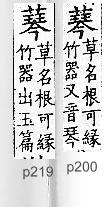 草名根可緣
竹器又音琴
草名根可緣
竹器出玉篇
p219
p200